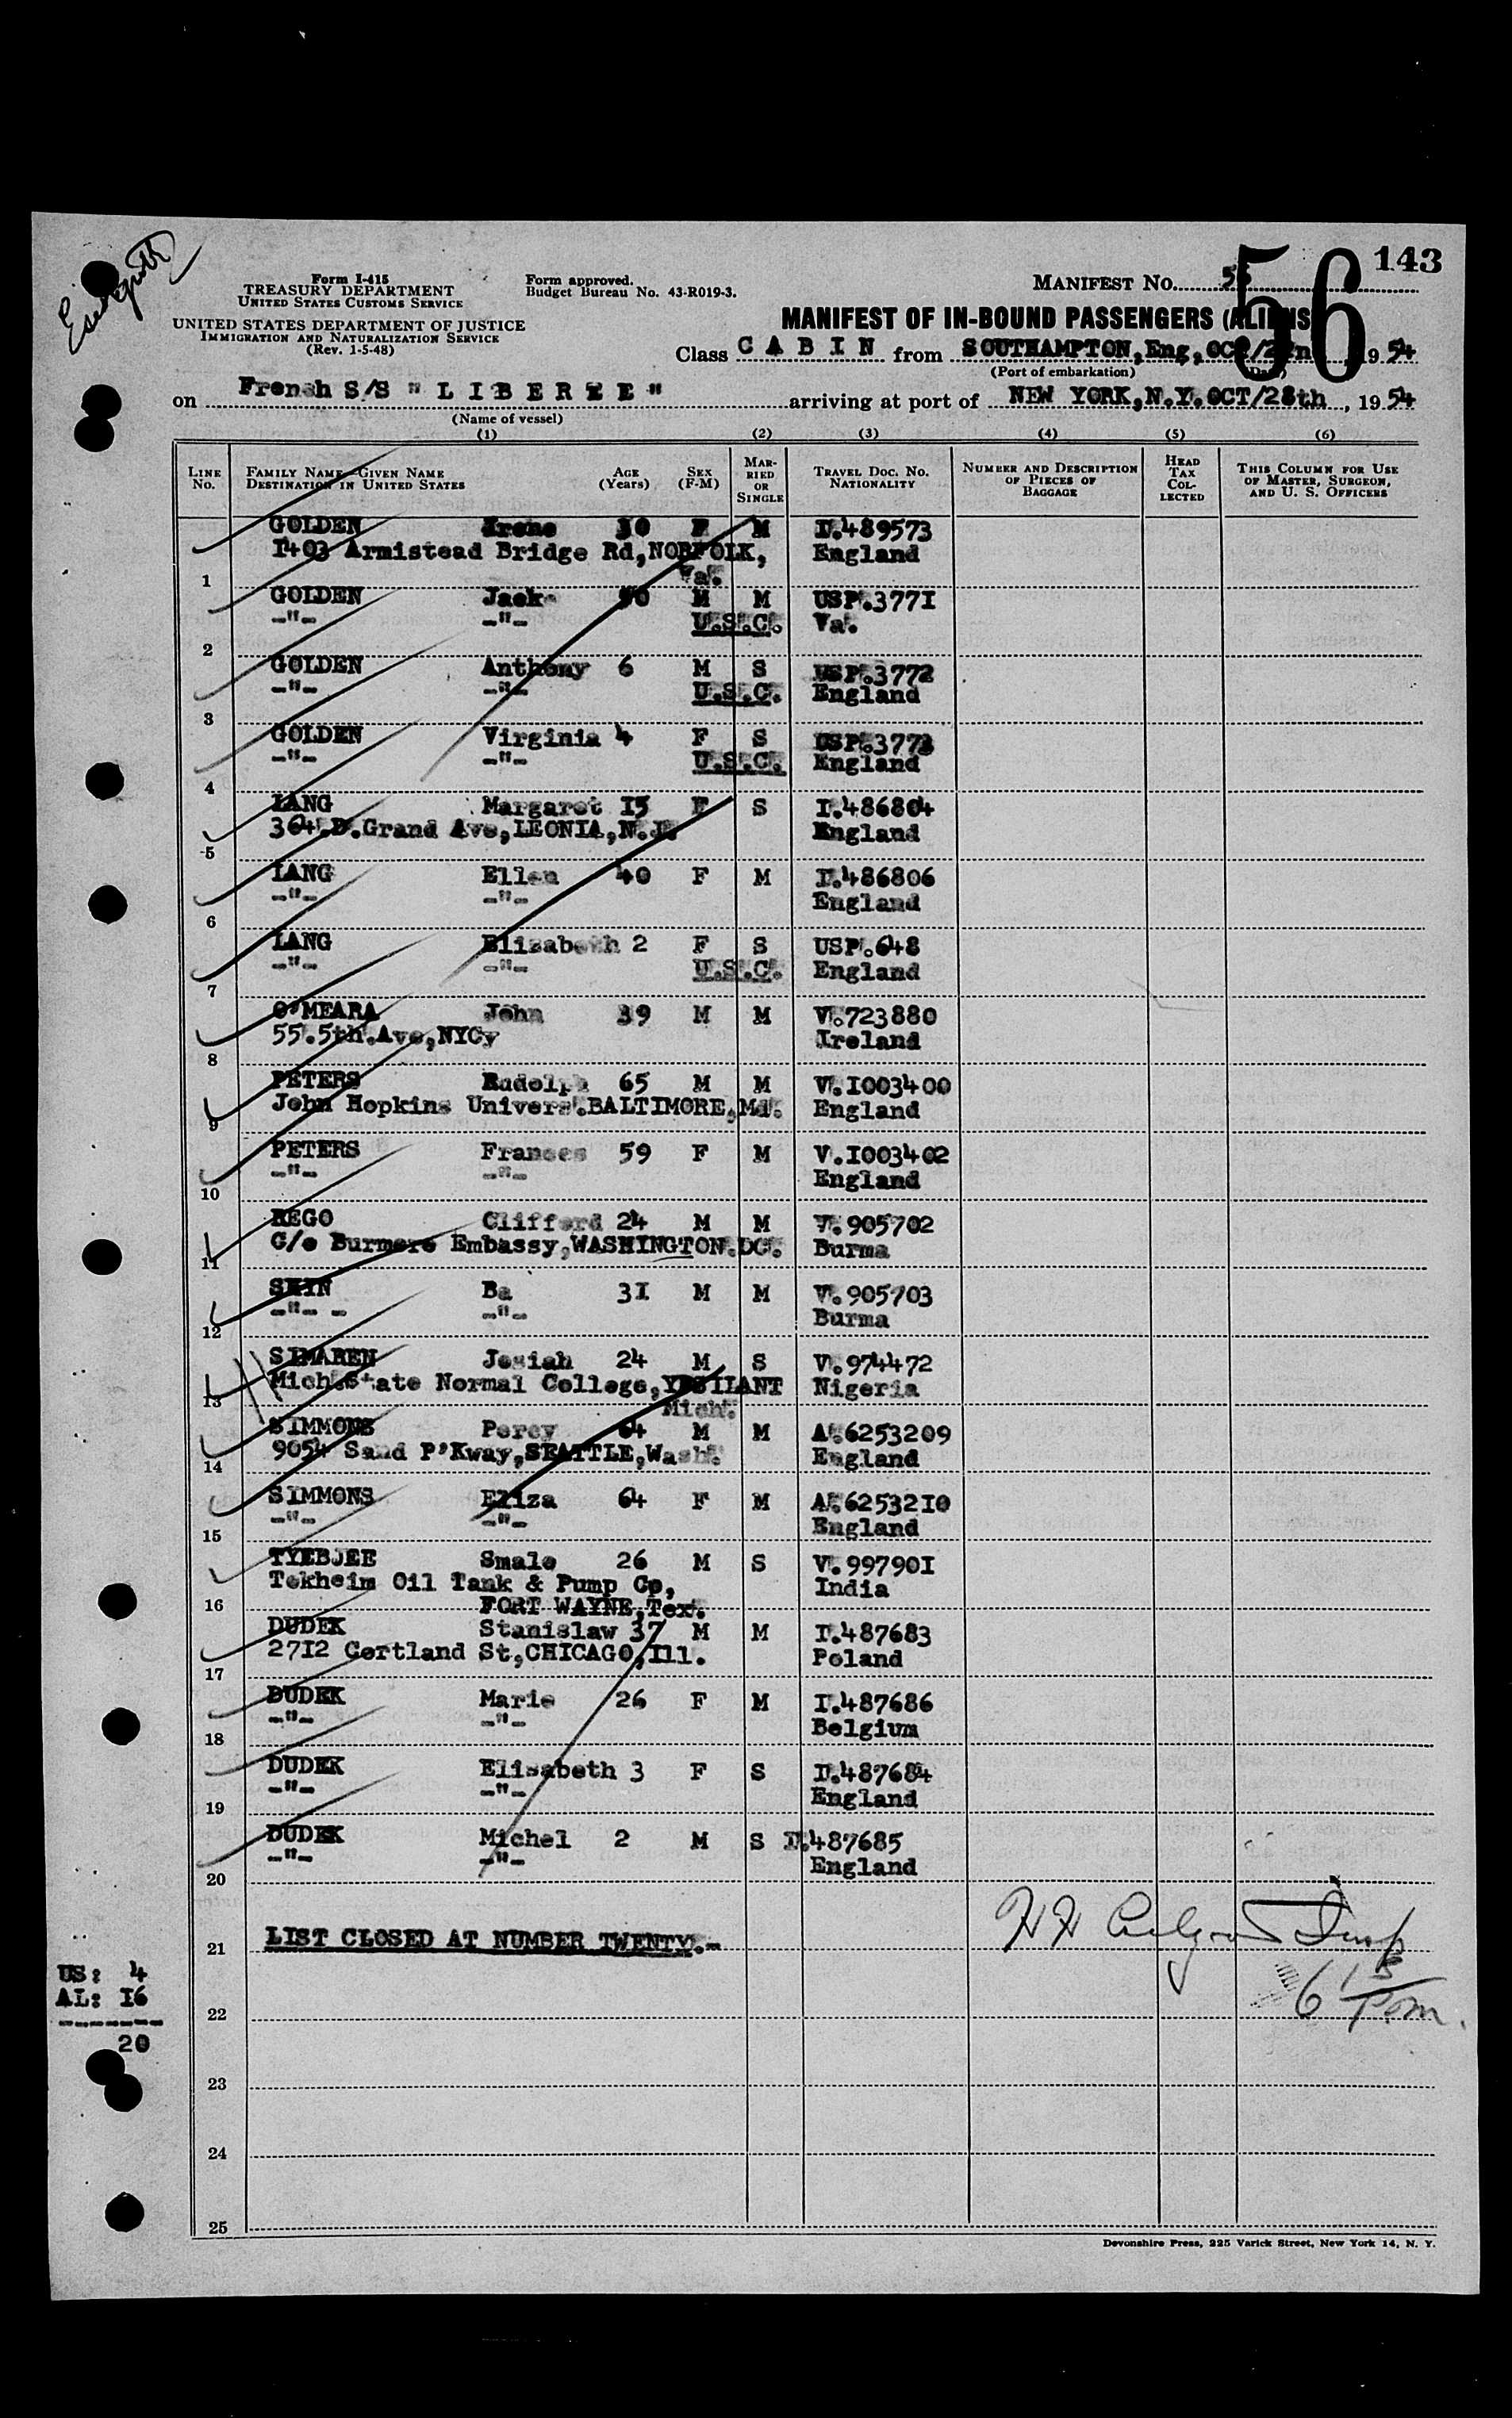 143
Form I-415
TREASURY DEPARTMENT
UNITED STATES CUSTOMS SERVICE
Form approved.
Budget Bureau No. 43-R019-3.
MANIFEST NO. 56
56
UNITED STATES DEPARTMENT OF JUSTICE
IMMIGRATION AND NATURALIZATION SERVICE
(Rev. 1-5-48)
MANIFEST OF IN-BOUND PASSENGERS (ALIENS
Class C A B I N from SOUTHAMPTON,Eng,OCT/ 1954
(Port of embarkation) (Date)
on French S/S "L I B E R T E" arriving at port of NEW YORK,N.Y.OCT/28th, 1954
(Name of vessel)
(1) (2) (3) (4) (5) (6)
LINE NO. FAMILY NAME—GIVEN NAME DESTINATION IN UNITED STATES AGE (Years) SEX (F-M) MARRIED OR SINGLE TRAVEL DOC. NO. NATIONALITY NUMBER AND DESCRIPTION OF PIECES OF BAGGAGE HEAD TAX COLLECTED THIS COLUMN FOR USE OF MASTER, SURGEON, AND U. S. OFFICERS
GOLDEN Irene 30 F M I.489573
1403 Armistead Bridge Rd,NORFOLK, England
1 Va.
GOLDEN Jack M M USP.3771
-"- -"- U.S.C. Va.
2
GOLDEN Anthony 6 M S USP.3772
-"- -"- U.S.C. England
3
GOLDEN Virginia 4 F S USP.3773
-"- -"- U.S.C. England
4
LANG Margaret 15 F S I.486804
364.D.Grand Ave,LEONIA,N.J. England
5
LANG Ellen 40 F M I.486806
-"- -"- England
6
LANG Elizabeth 2 F S USP.648
-"- -"- U.S.C. England
7
O'MEARA John 39 M M V.723880
55.5th.Ave,NYCy Ireland
8
PETERS Rudolph 65 M M V.1003400
John Hopkins Univers.BALTIMORE,Md. England
9
PETERS Frances 59 F M V.1003402
-"- -"- England
10
REGO Clifford 24 M M V.905702
C/o Burmere Embassy,WASHINGTON.DC. Burma
11
SHIN Ba 31 M M V.905703
-"- - -"- Burma
12
SIMAREN Josiah 24 M S V.974472
Mich.State Normal College,YPSILANT Nigeria
13 Mich.
SIMMONS Percy 64 M M A.6253209
9054 Sand P'Kway,SEATTLE,Wash. England
14
SIMMONS Eliza 64 F M A.6253210
-"- -"- England
15
TYEBJEE Smale 26 M S V.997901
Tokheim Oil Tank & Pump Co, India
16 FORT WAYNE,Tex.
DUDEK Stanislaw 37 M M I.487683
2712 Cortland St,CHICAGO,Ill. Poland
17
DUDEK Marie 26 F M I.487686
-"- -"- Belgium
18
DUDEK Elisabeth 3 F S I.487684
-"- -"- England
19
DUDEK Michel 2 M S I.487685
-"- -"- England
20
LIST CLOSED AT NUMBER TWENTY.-
21
US: 4
AL: 16
-------
20
6 15 P.m.
22
23
24
25
Devonshire Press, 225 Varick Street, New York 14, N. Y.